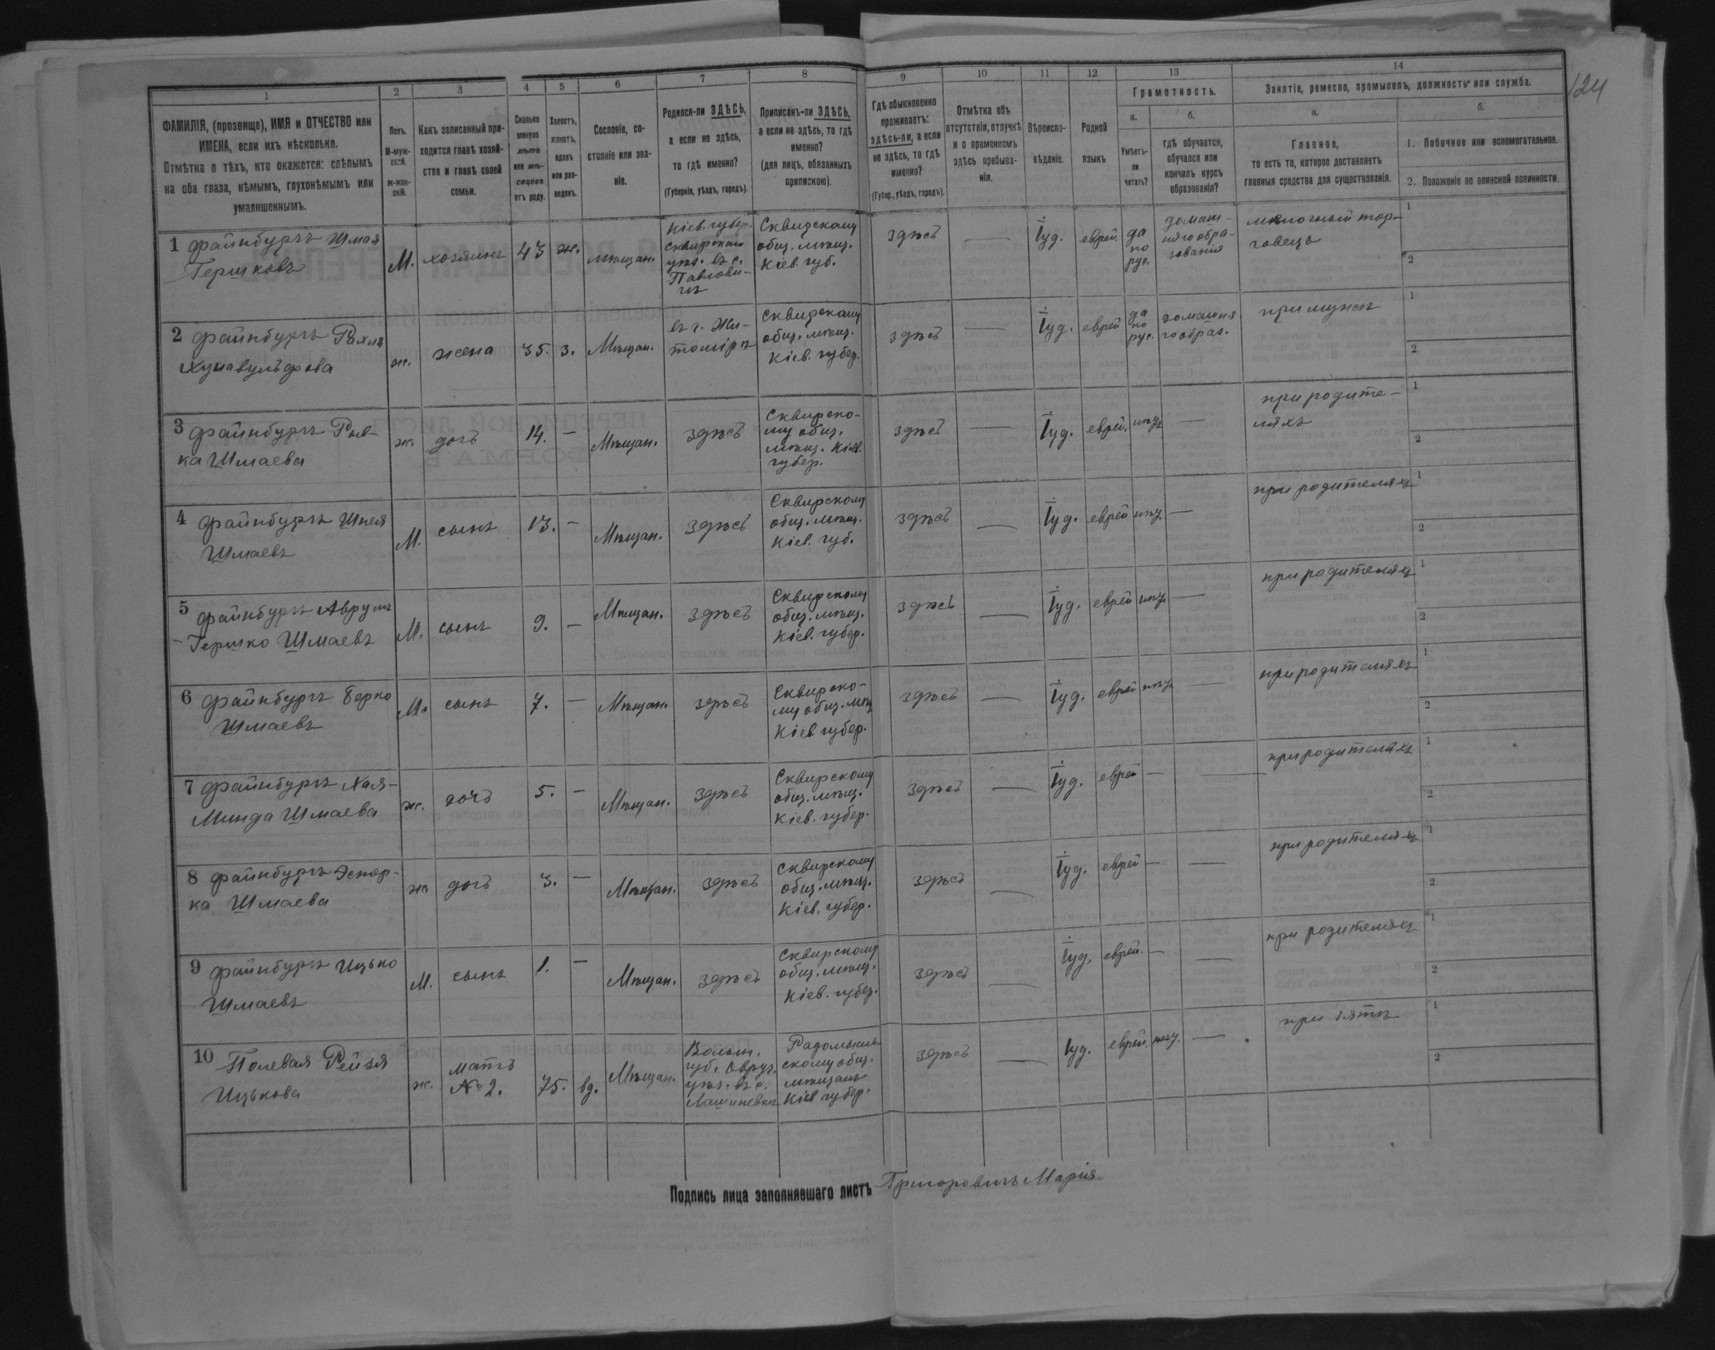 124
1 2 3 4 5 6 7 8 9 10 11 12 13 14
ФАМИЛІЯ, (прозвище), ИМЯ и ОТЧЕСТВО или
ИМЕНА, если ихъ нѣсколько.
Отмѣтка о тѣхъ, кто окажется: слѣпымъ
на оба глаза, нѣмымъ, глухонѣмымъ или
умалишеннымъ.
Полъ.
М-муж-
ской.
Ж-жен-
скій.
Какъ записанный при-
ходится главѣ хозяй-
ства и главѣ своей
семьи.
Сколько
минуло
лѣтъ
или мѣ-
сяцевъ
отъ роду.
Холостъ,
женатъ,
вдовъ
или раз-
веденъ.
Сословіе, со-
стояніе или зва-
ніе.
Родился-ли ЗДѢСЬ,
а если не здѣсь,
то гдѣ именно?
(Губернія, уѣздъ, городъ).
Приписанъ-ли ЗДѢСЬ,
а если не здѣсь, то гдѣ
именно?
(для лицъ, обязанныхъ
припискою).
Гдѣ обыкновенно
проживаетъ:
здѣсь-ли, а если
не здѣсь, то гдѣ
именно?
(Губер., уѣздъ, городъ).
Отмѣтка объ
отсутствіи, отлучкѣ
и о временномъ
здѣсь пребыва-
ніи.
Вѣроиспо-
вѣданіе.
Родной
языкъ
Грамотность.
а.
Умѣетъ-
ли
читать?
б.
гдѣ обучается,
обучался или
кончилъ курсъ
образованія?
Занятіе, ремесло, промыселъ, должность или служба.
а.
Главное,
то есть то, которое доставляетъ
главныя средства для существованія.
б.
1. Побочное или вспомогательное.
2. Положеніе по воинской повинности.
1 Файнбургъ Шмая
Гершковъ
М.
хозяинъ
43
ж.
мѣщан.
Кіев. губер.
Сквирскаго
уѣз. въ с.
Павлови-
чъ
Сквирскому
общ. мѣщ.
Кіев. губ.
здѣсь
—
Іуд.
еврей.
да
по
рус.
домаш-
няго обра-
зованія
мелочный тор-
говецъ
1
2
2 Файнбургъ
ж.
жена
35.
з.
Мѣщан.
въ г. Жи-
томірѣ
Сквирскому
общ. мѣщ.
Кіев. губер.
здѣсь
—
Іуд.
еврей
да
по
рус.
домашня
го образ.
при мужѣ
1
2
3 Файнбургъ Рив-
ка Шмаева
ж.
дочь
14.
—
Мѣщан.
здѣсь
Сквирско-
му общ.
мѣщ. Кіев.
губер.
здѣсь
—
Іуд.
еврей.
нѣт
—
при родите-
ляхъ
1
2
4 Файнбургъ
Шмаевъ
М.
сынъ
13.
—
Мѣщан.
здѣсь
Сквирскому
общ. мѣщ.
Кіев. губ.
здѣсь
—
Іуд.
еврей
нѣт
—
при родителях
1
2
5 Файнбургъ Аврумъ
-Гершко Шмаевъ
М.
сынъ
9.
—
Мѣщан.
здѣсь
Сквирскому
общ. мѣщ.
Кіев. губер.
здѣсь
—
Іуд.
еврей
нѣт
—
при родителях
1
2
6 Файнбургъ Берко
Шмаевъ
М.
сынъ
7.
—
Мѣщан.
здѣсь
Сквирско-
му общ. мѣщ
Кіев губер.
здѣсь
—
Іуд.
еврей
нѣт
—
при родителях
1
2
7 Файнбургъ Хая-
Минда Шмаева
ж.
дочь
5.
—
Мѣщан.
здѣсь
Сквирскому
общ. мѣщ.
Кіев. губер.
здѣсь
—
Іуд.
еврей
—
—
при родителях
1
2
8 Файнбургъ Эстер-
ка Шмаева
ж
дочь
3.
—
Мѣщан.
здѣсь
Сквирскому
общ. мѣщ.
Кіев. губер.
здѣсь
—
Іуд.
еврей
—
—
при родителях
1
2
9 Файнбургъ Ицько
Шмаевъ
М.
сынъ
1.
—
Мѣщан.
здѣсь
Сквирскому
общ. мѣщ.
Кіев. губер.
здѣсь
—
Іуд.
еврей.
—
—
при родителях
1
2
10 Полевая Рейзя
Ицькова
ж.
мать
№ 2.
75.
вд.
Мѣщан.
Волын.
губ. Овруч.
уѣз. въ с.
Радомысль
скому общ.
мѣщанъ
Кіев губер.
здѣсь
—
Іуд.
еврей.
нѣт.
—
при зятѣ
1
2
Подпись лица заполнявшаго листъ Григоровичъ Марія